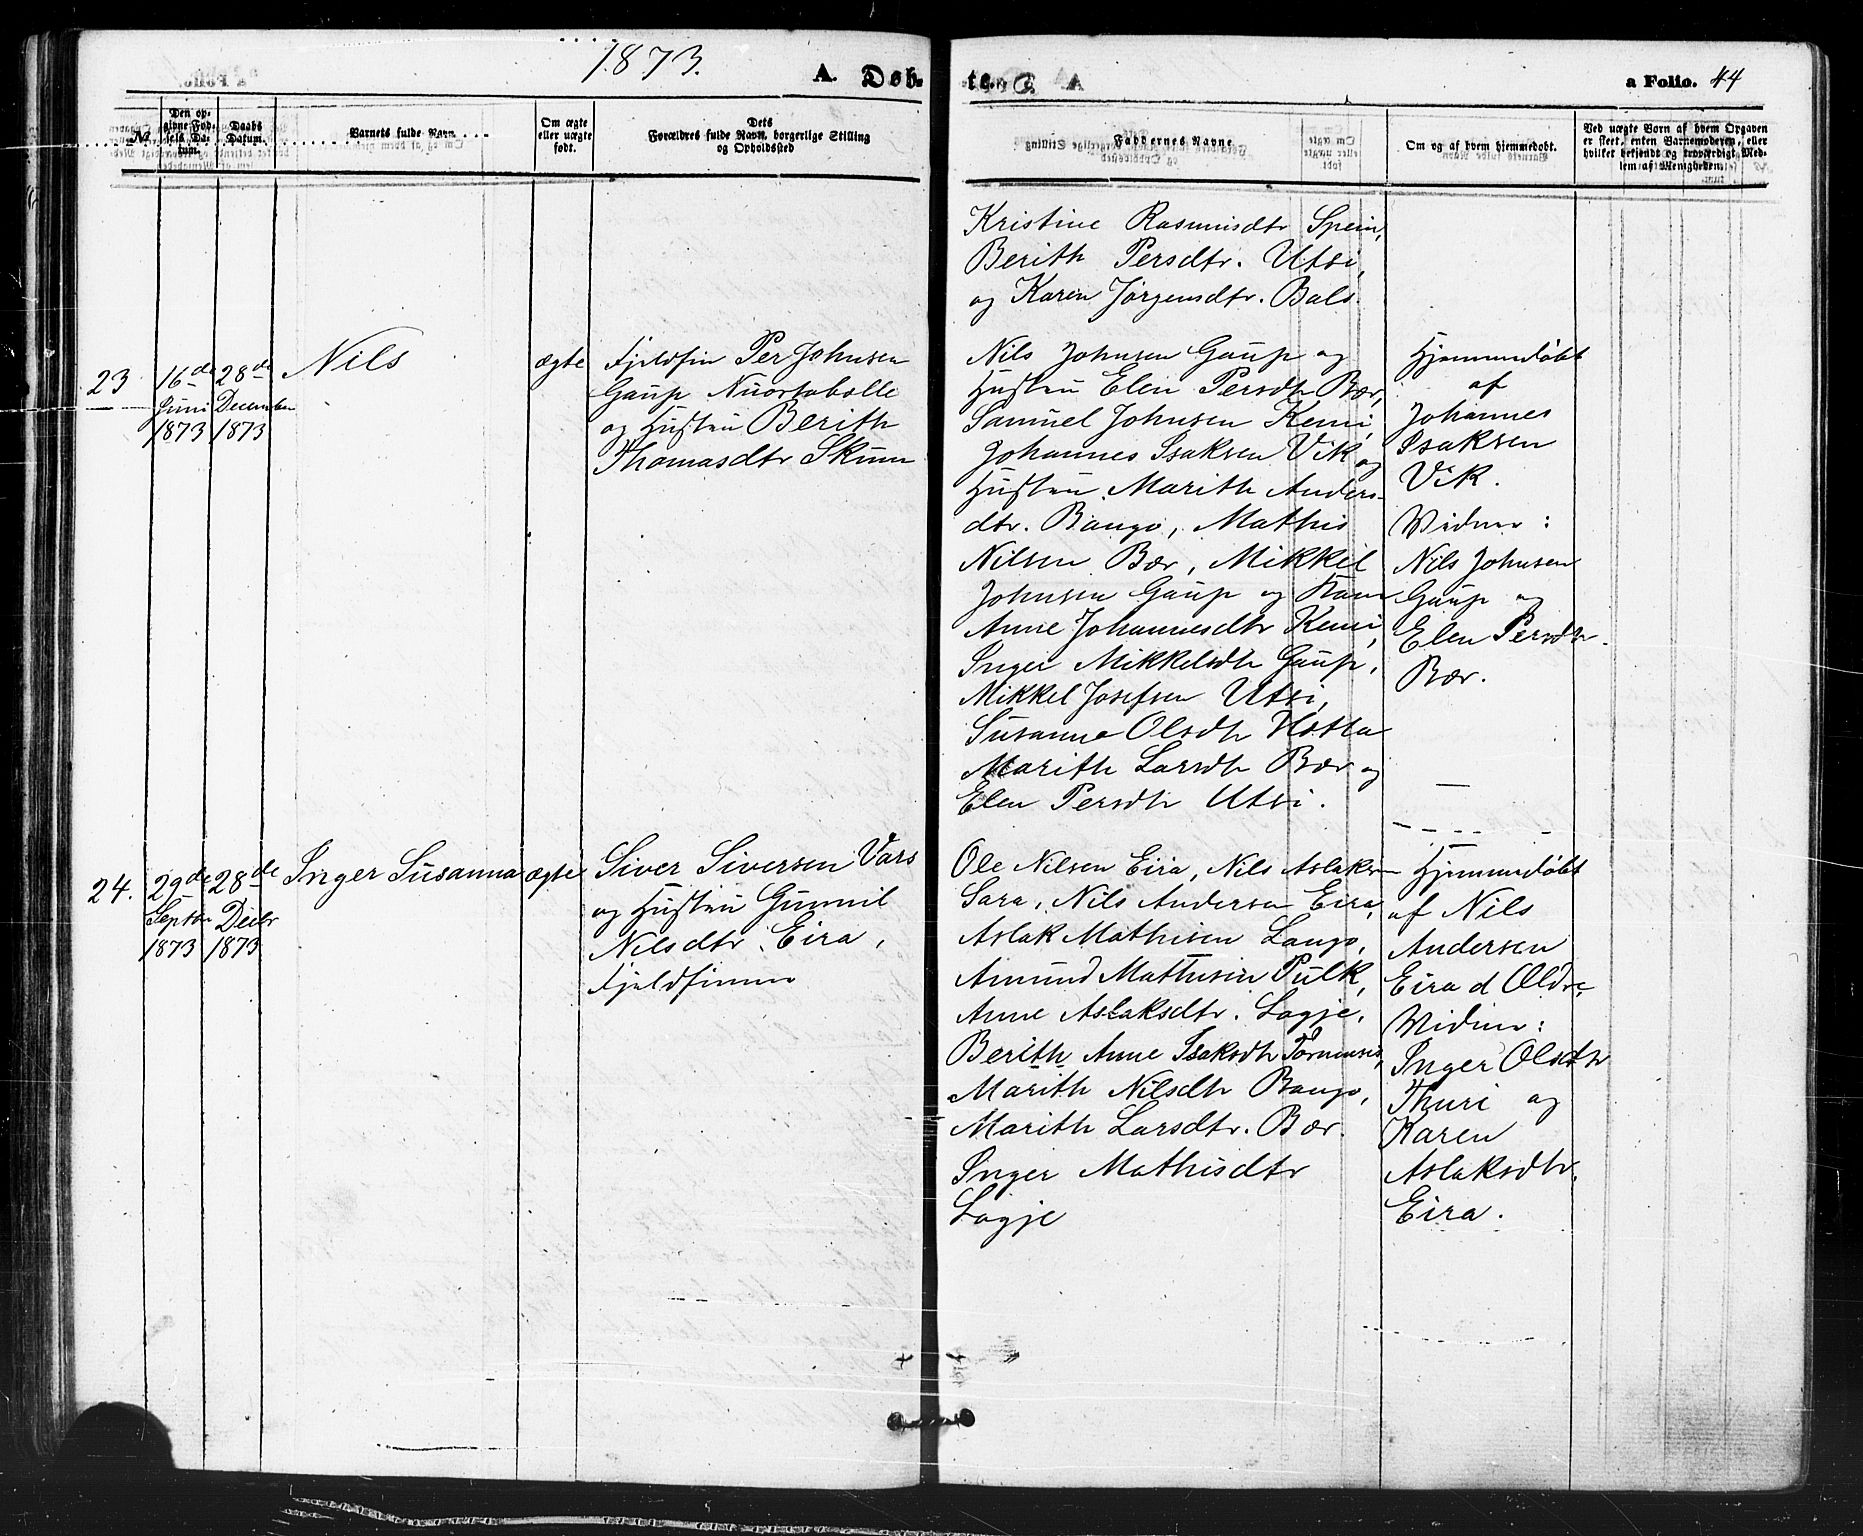 1873.
A. Døb-
te.
a Folio. 44
No.
Den op-
givne Fød-
sels Da-
tum.
Daabs
Datum.
Barnets fulde Navn.
Om ægte
eller uægte
født.
Dets
Forældres fulde Navn, borgerlige Stilling
og Opholdssted
Faddernes Navne
Om og af hvem hjemmedøbt.
Ved uægte Børn af hvem Opgaven
er skeet, enten Barnemoderen, eller
hvilket bekjendt og troværdigt Med-
lem af Menigheden.
Kristine Rasmusdtr Spein,
Berith Persdtr. Utsi,
og Karen Jørgensdtr. Bals.
23
16de
Juni
1873
28de
December
1873
Nils
ægte
Fjeldfin Per Johnsen
Gaup Nuortabelle
og Hustru Berith
Thomasdtr Skum
Nils Johnsen Gaup og
Hustru Elen Persdtr Bær,
Samuel Johnsen Kemi,
Johannes Isaksen Vik og
Hustru Marith Anders-
dtr. Bango, Mathis
Nilsen Bær, Mikkel
Johnsen Gaup og Kone
Anne Johannesdtr Kemi,
Inger Mikkelsdtr Gaup,
Mikkel Josefsen Utsi,
Susanna Olsdtr Hætta
Marith Larsdtr Bær og
Elen Persdtr Utsi.
Hjemmedøbt
af
Johannes
Isaksen
Vik.
Vidner:
Nils Johnsen
Gaup og
Elen Persdtr.
Bær.
24.
29de
Septbr
1873
28de
Decbr
1873
Inger Susanna
ægte
Siver Siversen Vars
og Hustru Gunnil
Nilsdtr. Eira,
Fjeldfinner
Ole Nilsen Eira, Nils Aslaksen
Sara, Nils Andersen Eira,
Aslak Mathisen Lango,
Amund Mathisen Pulk,
Anne Aslaksdtr. Logje,
Berith Anne Isaksdtr Tornensis,
Marith Nilsdtr Bango,
Marith Larsdtr. Bær.
Inger Mathisdtr
Logje
Hjemmedøbt
af Nils
Andersen
Eira d Ældre,
Vidner:
Inger Olsdtr
Thuri og
Karen
Aslaksdtr.
Eira.